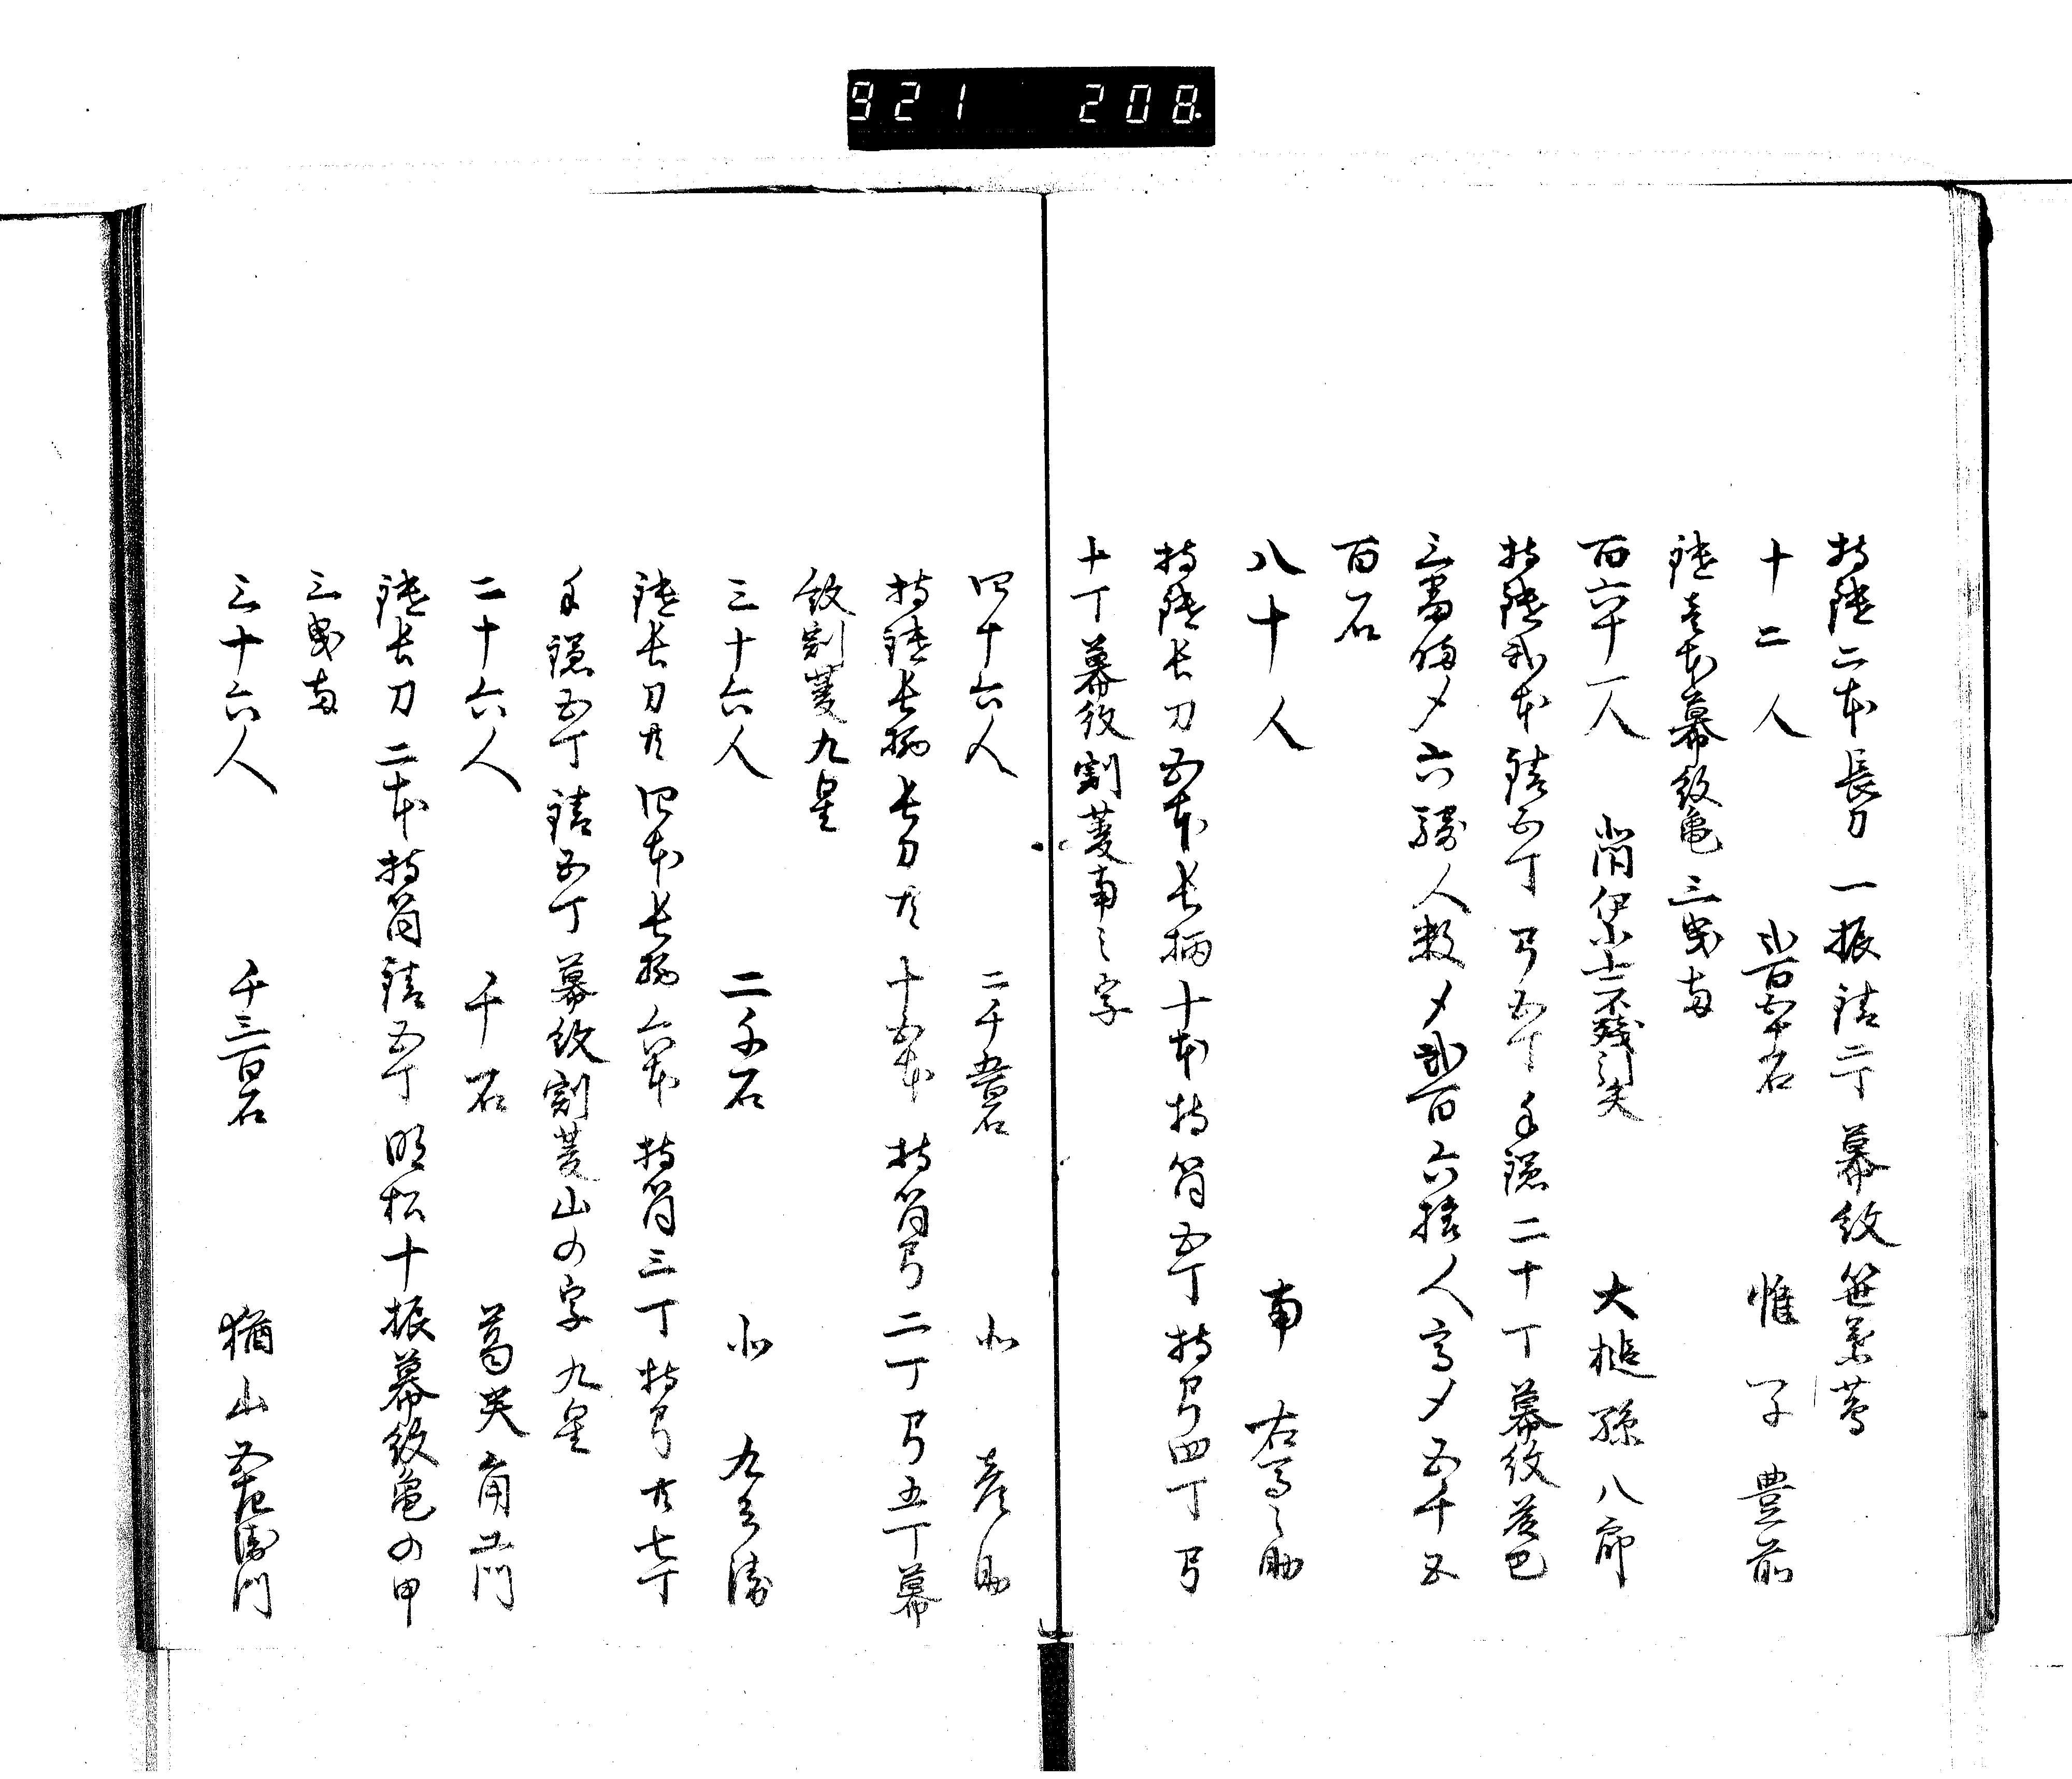 921 208
持鑓二本長刀一振鉄二丁幕紋笹葉
十二人 百五十石 惟子豊前
鑓壱本幕紋亀三曵両
百六十一人 小間伊小士不残引矢 大槌孫八郎
持鑓弐本鉄五丁弓五丁手鑓二十丁幕紋巴
三番〆六騎人数〆弐百六拾人高〆五千五
百石
八十人 南右馬之助
持鑓長刀五本長柄十本持筒五丁持弓四丁弓
十丁幕紋割菱南之字
四十六人 二千五百石 北彦助
持鑓長柄長刀共十五本持筒弓二丁弓五丁幕
紋割菱九星
三十六人 二千石 北九兵衛
鑓長刀共四本長柄六本持筒三丁持弓共七丁
手鑓五丁鉄五丁幕紋割菱山の字九星
二十六人 千石 葛笑角右衛門
鑓長刀二本持筒鉄五丁明松十振幕紋亀の甲
三曵両
三十六人 千三百石 猶山五左衛門